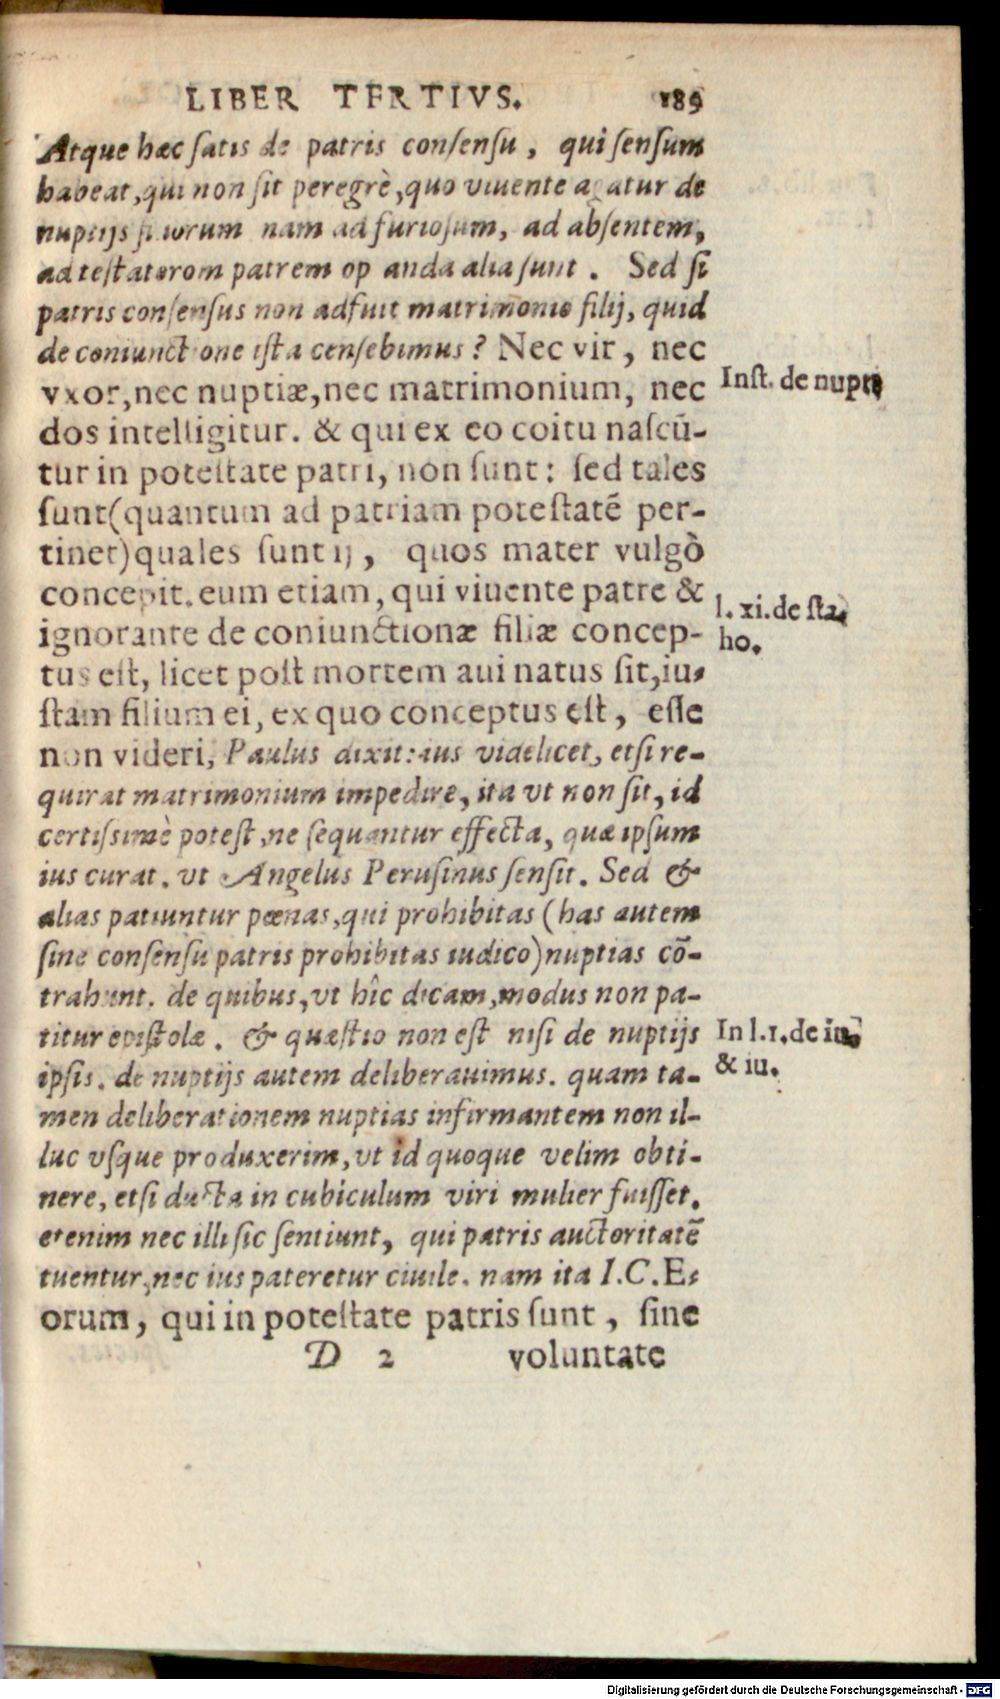 LIBER TERTIVS. 189
Atque hæc satis de patris consensu, qui sensum
habeat, qui non sit peregrè, quo viuente agatur de
nuptijs filiorum nam ad furiosum, ad absentem,
ad testatorom patrem op anda alia sunt. Sed si
patris consensus non adfuit matrimonio filij, quid
de coniunctione ista censebimus? Nec vir, nec
vxor, nec nuptiæ, nec matrimonium, nec
Inst. de nupt.
dos intelligitur. & qui ex eo coitu nascū-
tur in potestate patri, non sunt: sed tales
sunt (quantum ad patriam potestatē per-
tinet) quales sunt ij, quos mater vulgò
concepit. eum etiam, qui viuente patre &
l. xi. de sta.
ignorante de coniunctionæ filiæ concep-
ho.
tus est, licet post mortem aui natus sit, iu-
stam filium ei, ex quo conceptus est, esse
non videri, Paulus dixit: ius videlicet, etsi re-
quirat matrimonium impedire, ita vt non sit, id
certissimè potest, ne sequantur effecta, quæ ipsum
ius curat. vt Angelus Perusinus sensit. Sed &
alias patiuntur pœnas, qui prohibitas (has autem
sine consensu patris prohibitas iudico) nuptias cō-
trahunt. de quibus, vt hîc dicam, modus non pa-
titur epistolæ. & quæstio non est nisi de nuptijs
In l. 1. de iu.
ipsis. de nuptijs autem deliberauimus. quam ta-
& iu.
men deliberationem nuptias infirmantem non il-
luc vsque produxerim, vt id quoque velim obti-
nere, etsi ducta in cubiculum viri mulier fuisset.
etenim nec illi sic sentiunt, qui patris auctoritatē
tuentur, nec ius pateretur ciuile. nam ita I.C. E-
orum, qui in potestate patris sunt, sine
D 2 voluntate
Digitalisierung gefördert durch die Deutsche Forschungsgemeinschaft - DFG